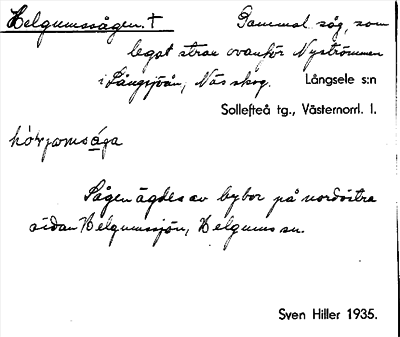 Helgumssågen. † Gammal såg, som
legat strax ovanför Nyströmmen
i Långsjöån, Näs skog. Långsele s:n
Sollefteå tg., Västernorrl. l.
Sågen ägdes av bybor på nordöstra
sidan Helgumssjön, Helgums sn.
Sven Hiller 1935.